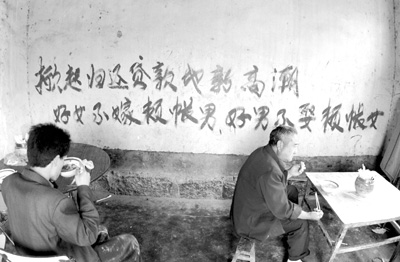 掀起归还贷款的新高潮
好女不嫁赖帐男、好男不娶赖帐女